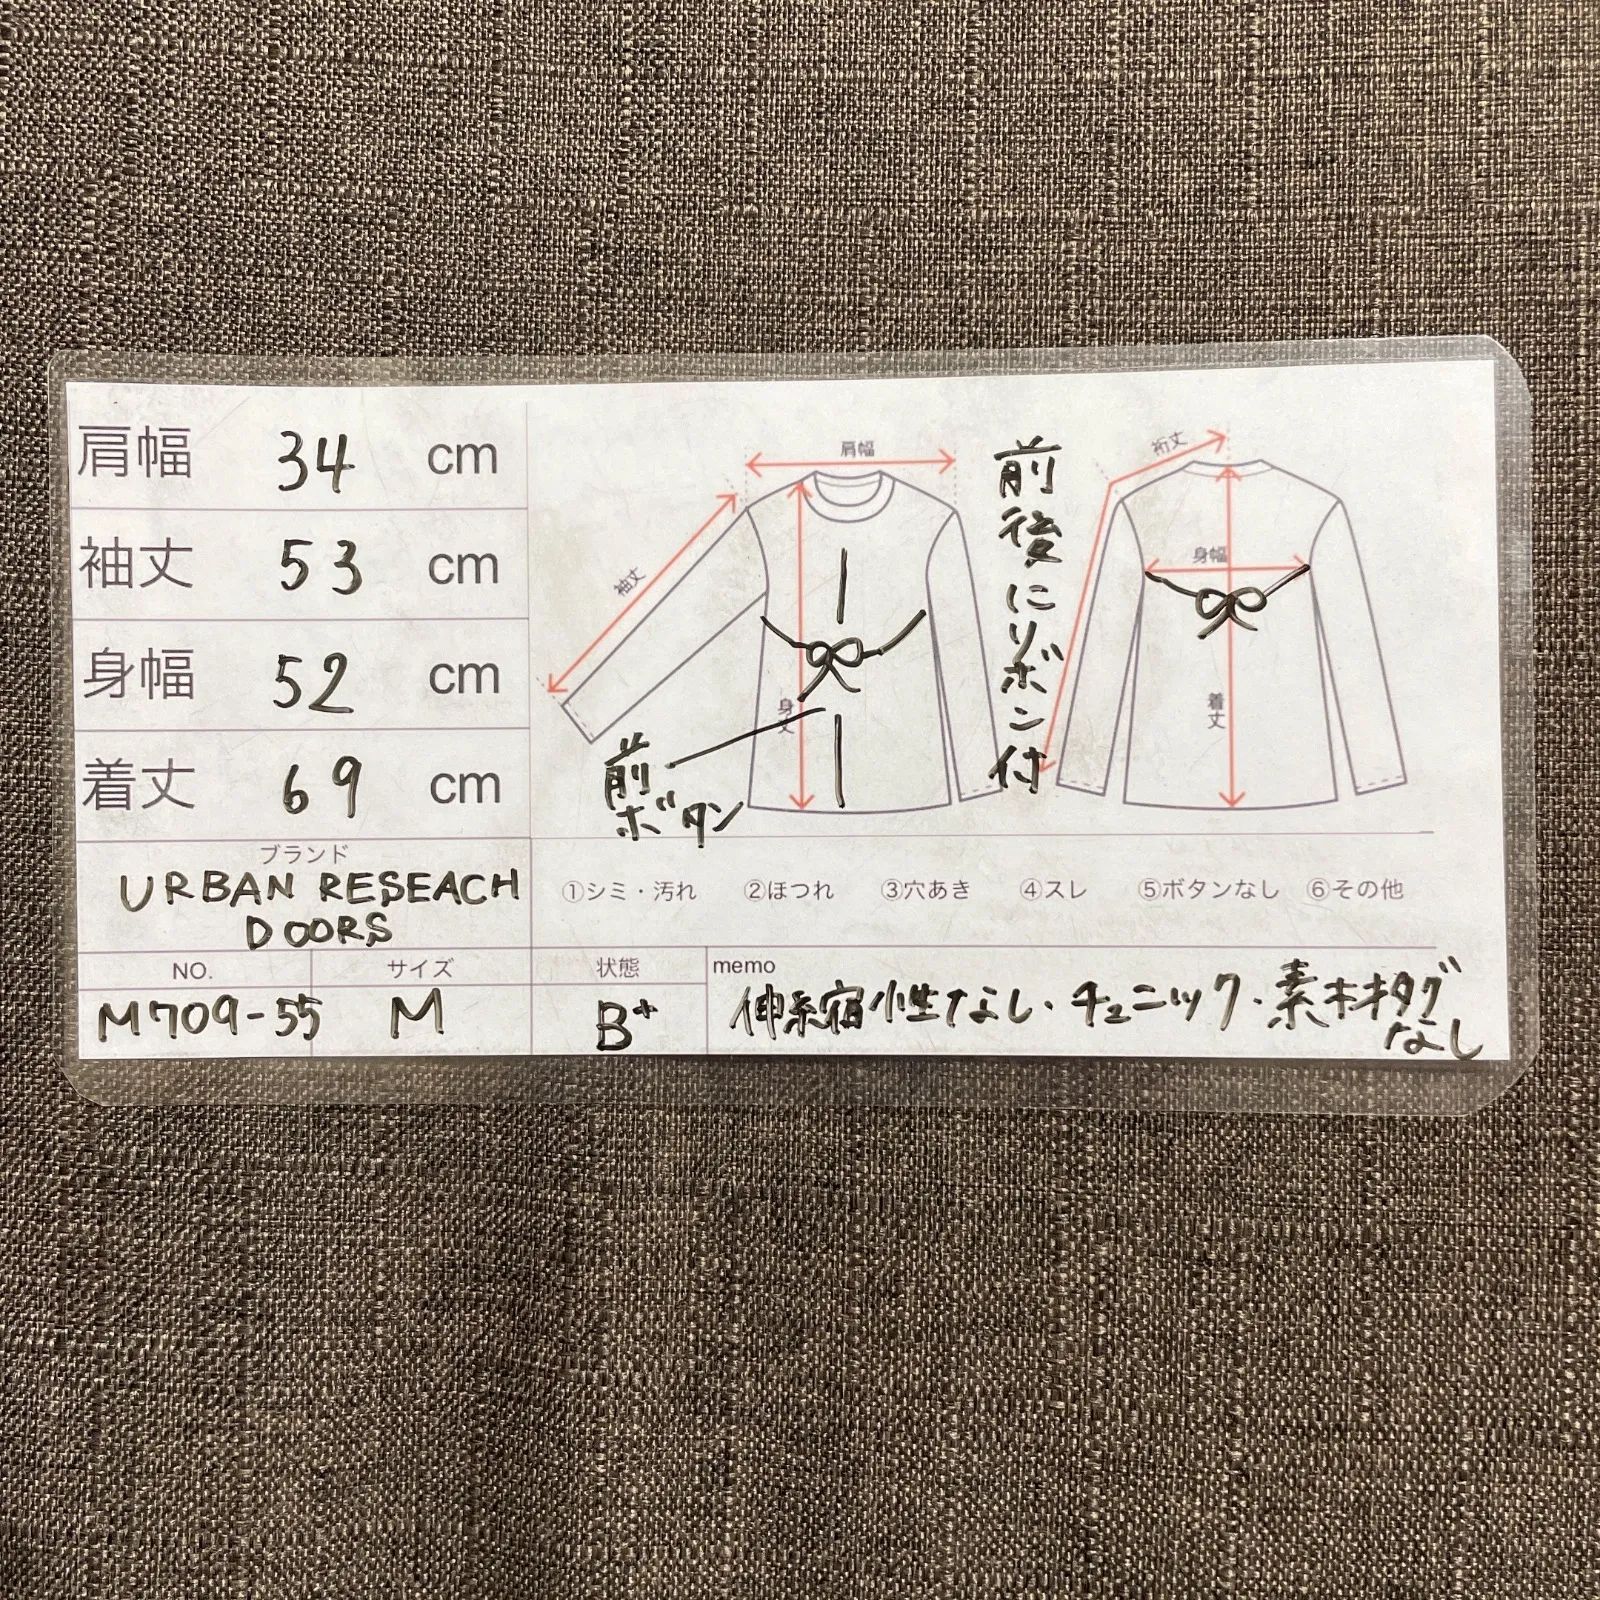 肩幅 34 cm
袖丈 53 cm
身幅 52 cm
着丈 69 cm
ブランド
URBAN RESEACH
DOORS
NO.
M709-55
サイズ
M
肩幅
袖丈
身丈
前
ボタン
前後にリボン付
裄丈
身幅
着丈
①シミ・汚れ ②ほつれ ③穴あき ④スレ ⑤ボタンなし ⑥その他
状態
B+
memo
伸縮性なし・チュニック・素材タグ
なし